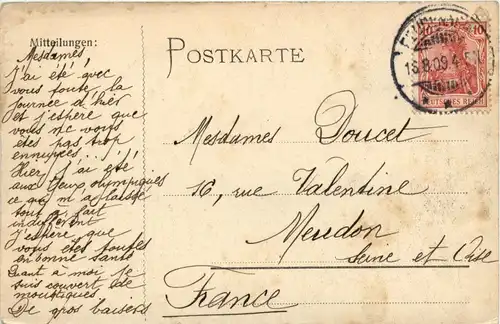 Mitteilungen:
POSTKARTE
Mesdames
J'ai été avec
vous toute la
journée d'hier
et j'espère que
vous ne vous
êtes pas trop
ennuyées...!!
Hier j'ai été
aux Jeux olympiques
ce qui m'a laissée
tout à fait
indifférent
J'espère que
vous êtes toutes
en bonne santé
Quant à moi je
suis couvert de
moustiques
De gros baisers
Mesdames Doucet
16, rue Valentine
Meudon
Seine et Oise
France
10 10
DEUTSCHES REICH
09.4-5